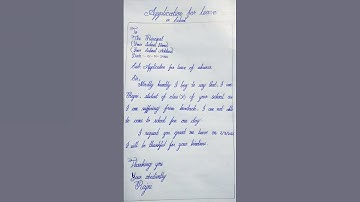 Application for Leave
in School
To
The Principal
(Your School Name)
(Your School Address)
Date :-
Sub: Application for leave of absence
Sir,
Mostly humbly I beg to say that, I am
Rajni, student of class (X) of your school as
I am suffering from headach. I am not able
to come to school for one day.
I request you grant me leave on
I will be thankful for your kindness.
Thanking you
Your obediently
Rajni